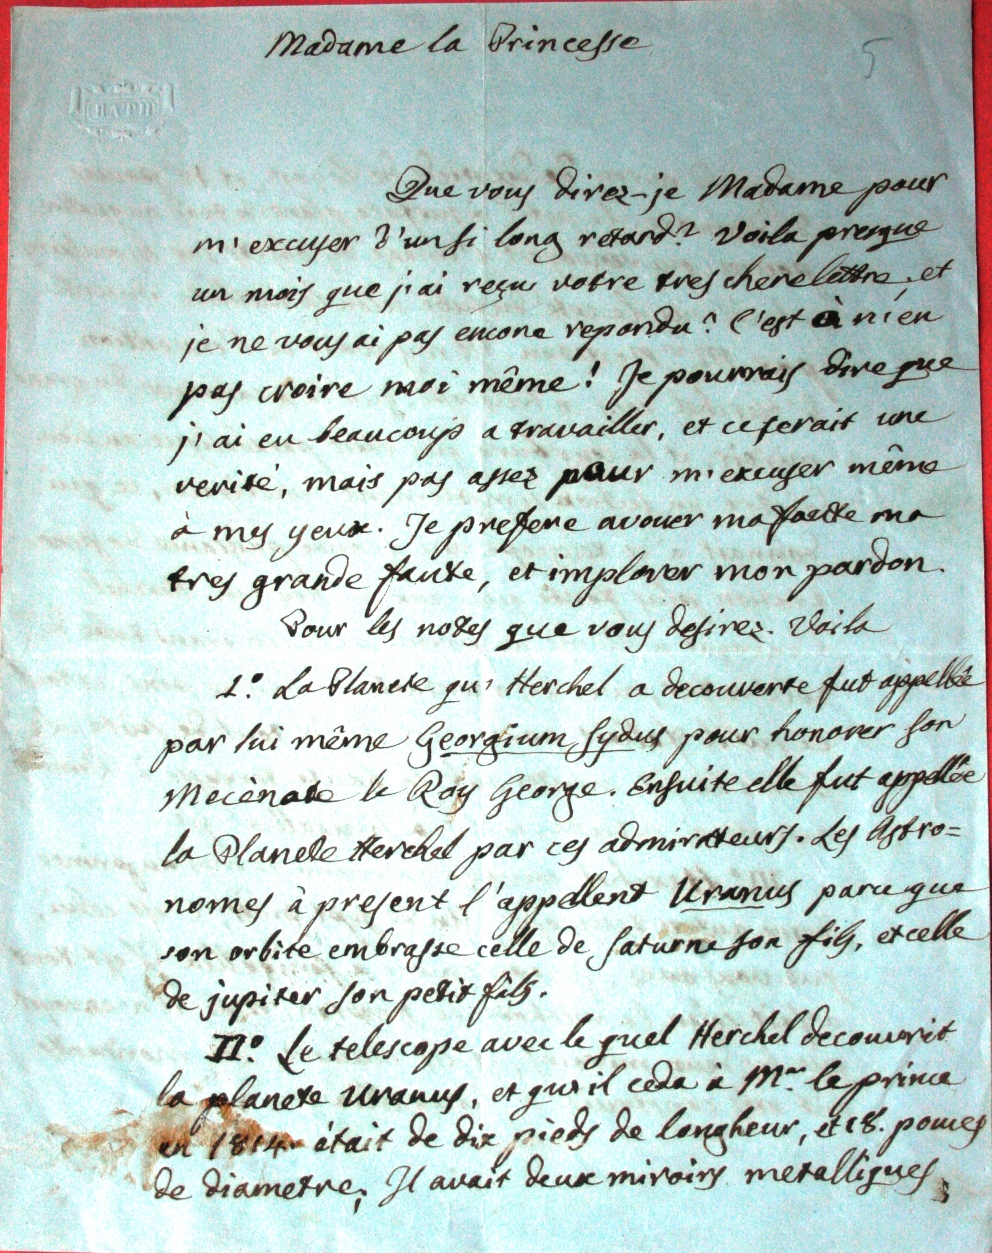 Madame la Princesse
5
BATH
Que vous direz-je Madame pour
m'excuser d'un si long retard? Voila presque
un mois que j'ai reçu votre tres chere lettre, et
je ne vous ai pas encore repondu! C'est à n'en
pas croire moi même! Je pourrais dire que
j'ai eu beaucoup a travailler, et ce serait une
verité, mais pas assez pour m'excuser même
à mes yeux. Je prefere avouer ma faute ma
tres grande faute, et implorer mon pardon.
Pour les notes que vous desirez. Voila
1.º La Planete qu' Herchel a decouverte fut appellée
par lui même Georgium Sydus pour honorer son
Mecènate le Roy George. Ensuite elle fut appellée
la Planete Herchel par ces admiratteurs. Les Astro=
nomes à present l'appellent Uranus parce que
son orbite embrasse celle de Saturne son fils, et celle
de jupiter son petit fils.
II.º Le telescope avec le quel Herchel decouvrit
la planete Uranus, et qu'il ceda à Mr le prince
en 1814 était de dix pieds de longheur, et 18. pouces
de diametre; Il avait deux miroirs metalliques